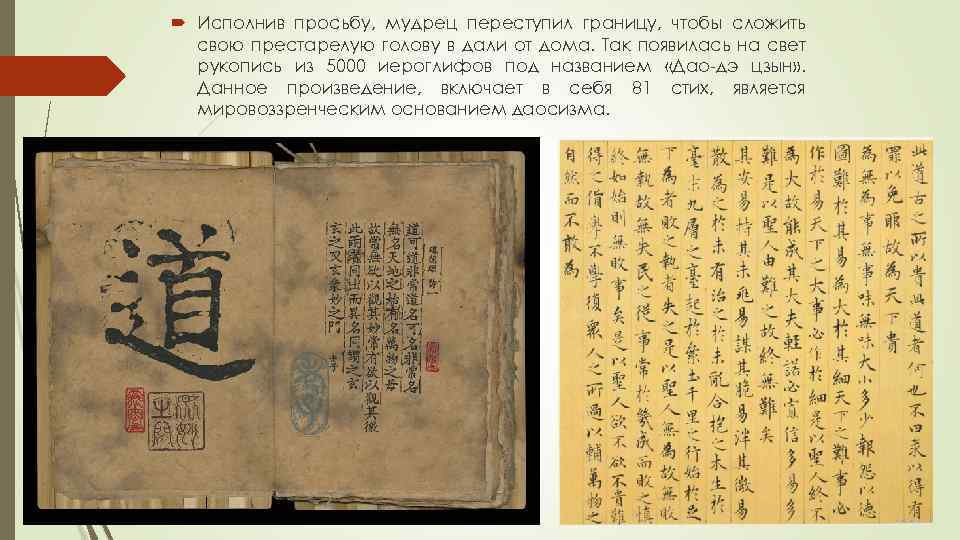 Исполнив просьбу, мудрец переступил границу, чтобы сложить
свою престарелую голову в дали от дома. Так появилась на свет
рукопись из 5000 иероглифов под названием «Дао-дэ цзын».
Данное произведение, включает в себя 81 стих, является
мировоззренческим основанием даосизма.
道
道可道非常道名可名非常名
無名天地之始有名萬物之母
故常無欲以觀其妙常有欲以觀其徼
此兩者同出而異名同謂之玄
玄之又玄衆妙之門
此道古之所以貴此道者何也不曰求以得有
罪以免耶故為天下貴
為無為事無事味無味大小多少報怨以德
圖難於其易為大於其細天下之難事必
作於易天下之大事必作於細是以聖人終不
為大故能成其大夫輕諾必寡信多易多
難是以聖人由難之故終無難矣
其安易持其未兆易謀其脆易泮其微易
散為之於未有治之於未亂合抱之木生於
毫末九層之臺起於絫土千里之行始於足
下為者敗之執者失之是以聖人無為故無敗
無執故無失民之從事常於幾成而敗之慎
終如始則無敗事矣是以聖人欲不欲不貴難
得之貨學不學復衆人之所過以輔萬物之
自然而不敢為